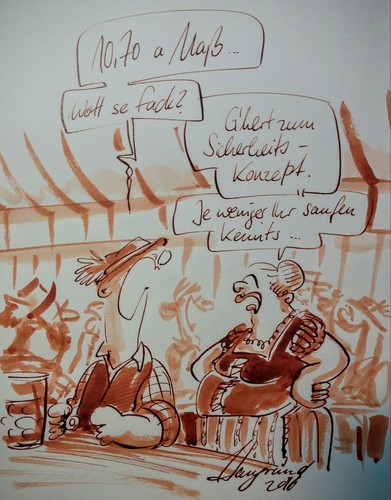 10,70 a Maß...
Wott se fack?
G'hert zum
Sicherheits -
Konzept.
Je weniger Ihr saufen
kennts...
2016